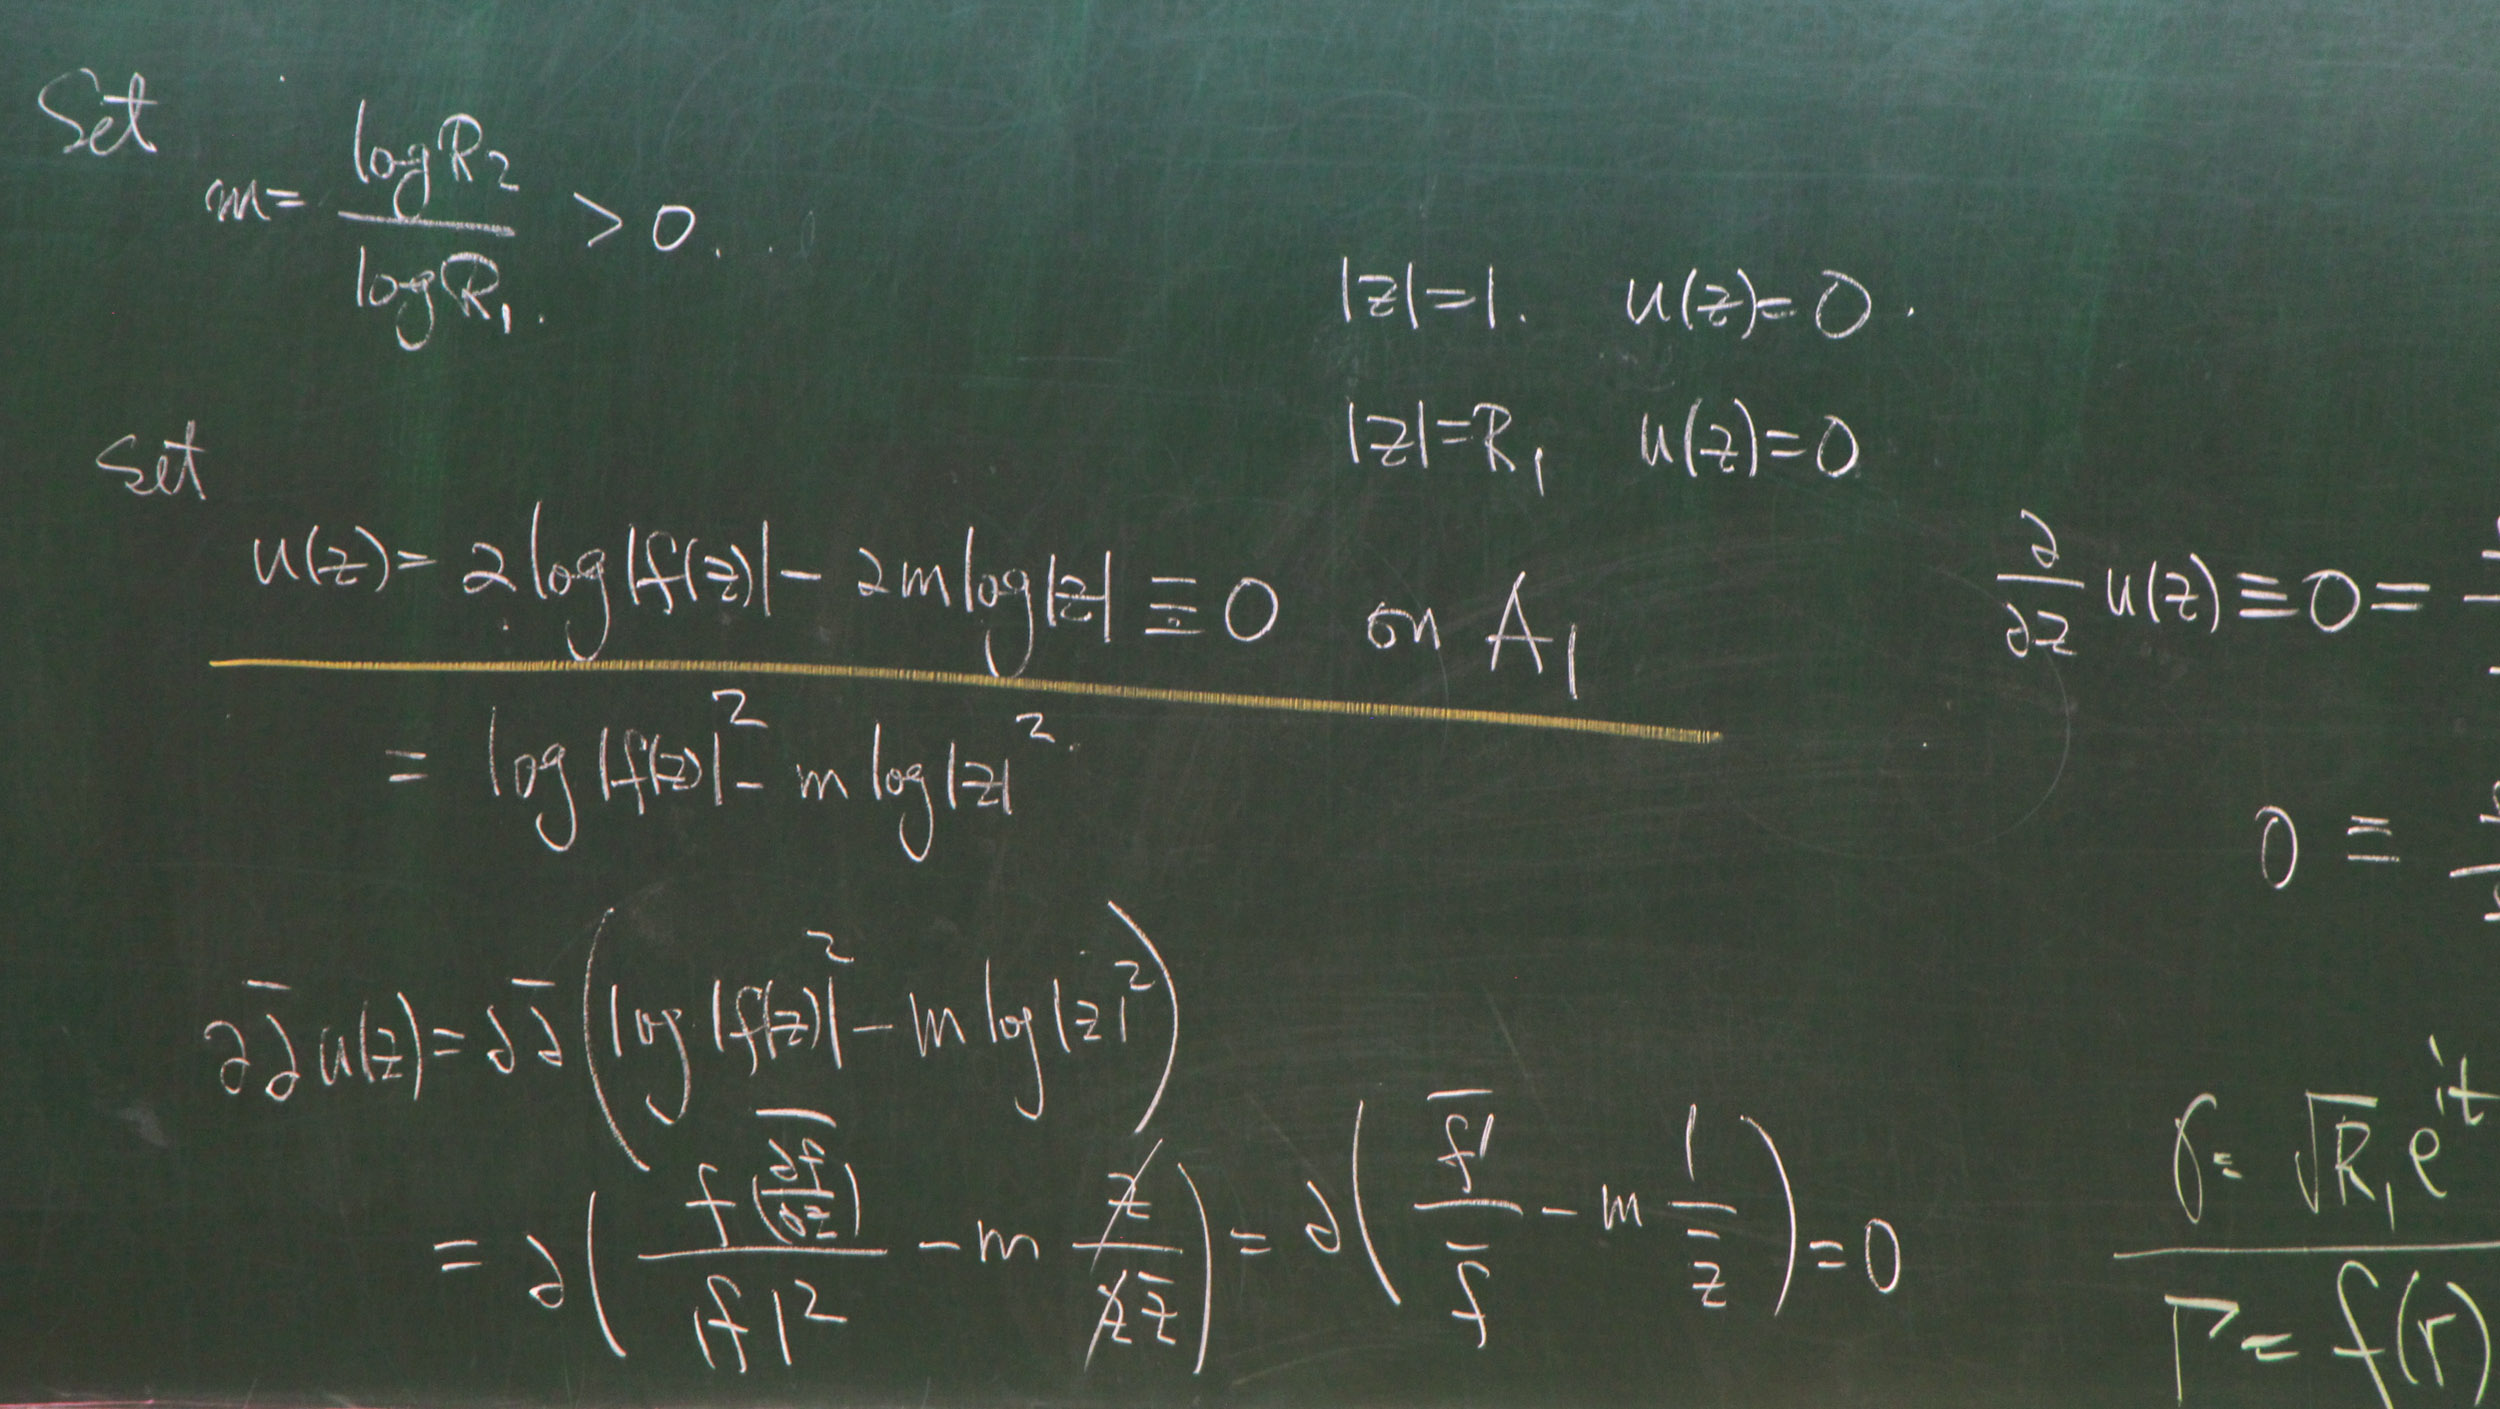 Set
m = log R₂ / log R₁ > 0.
|z|=1. u(z)=0.
|z|=R₁ u(z)=0
Set
u(z) = 2log|f(z)| - 2m log|z| ≡ 0 on A₁
= log|f(z)|² - m log|z|².
∂∂̄u(z) = ∂∂̄(log|f(z)|² - m log|z|²)
= ∂( f \overline{(∂f/∂z)} / |f|² - m z/(z z̄) ) = ∂( \overline{f'} / \overline{f} - m 1/z̄ ) = 0
∂/∂z u(z) ≡ 0 =
0 ≡
γ = √R₁ e^{it}
Γ = f(r)